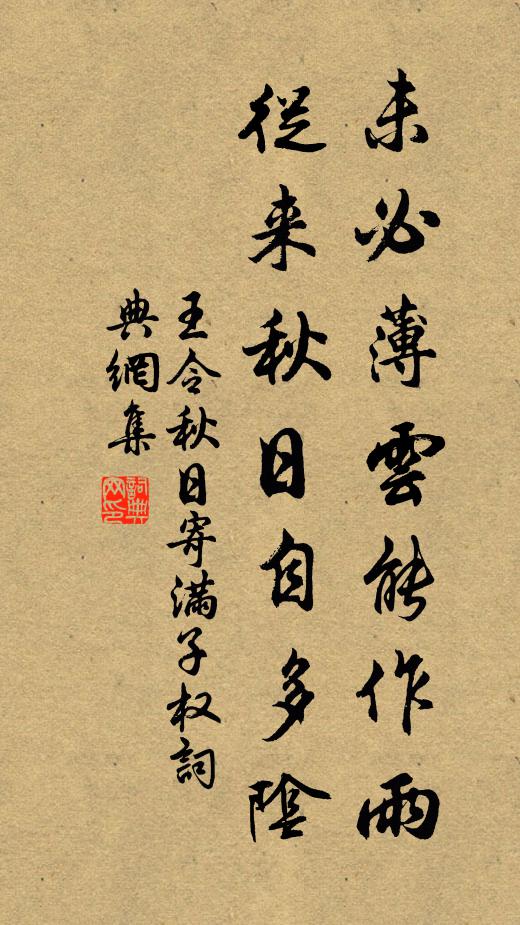 未必薄雲能作雨
從来秋日自多陰
王令秋日寄滿子权詞
典網集
詞典網印